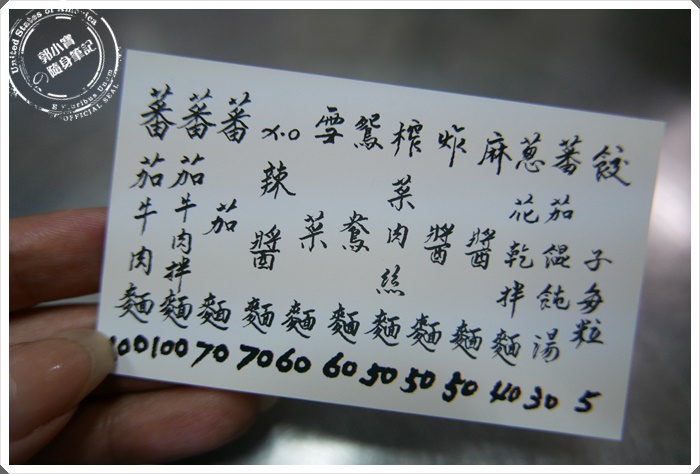 餃子每粒 5
蕃茄餛飩湯 30
蔥花乾拌麵 40
麻醬麵 50
炸醬麵 50
榨菜肉絲麵 50
鴛鴦麵 60
雪菜麵 60
XO辣醬麵 70
蕃茄麵 70
蕃茄牛肉拌麵 100
蕃茄牛肉麵 100
United States of America
郭小寶
の隨身筆記
E Pluribus Unum
OFFICIAL SEAL